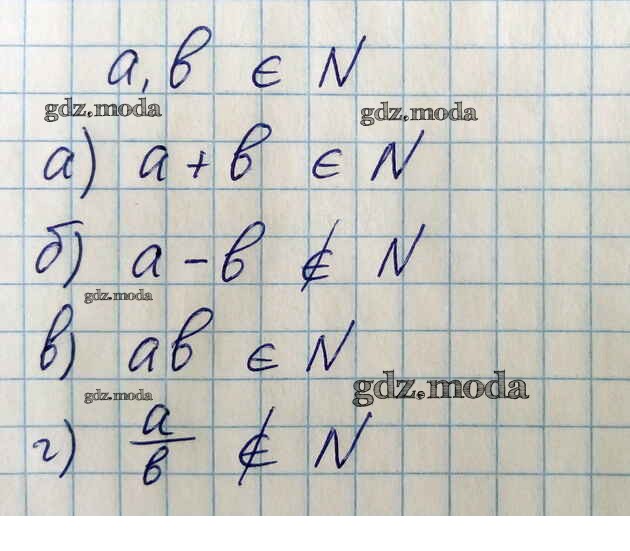 а, в ∈ N
gdz.moda gdz.moda
а) а + в ∈ N
б) а - в ∉ N
gdz.moda
в) ав ∈ N
gdz.moda gdz.moda
г) а/в ∉ N